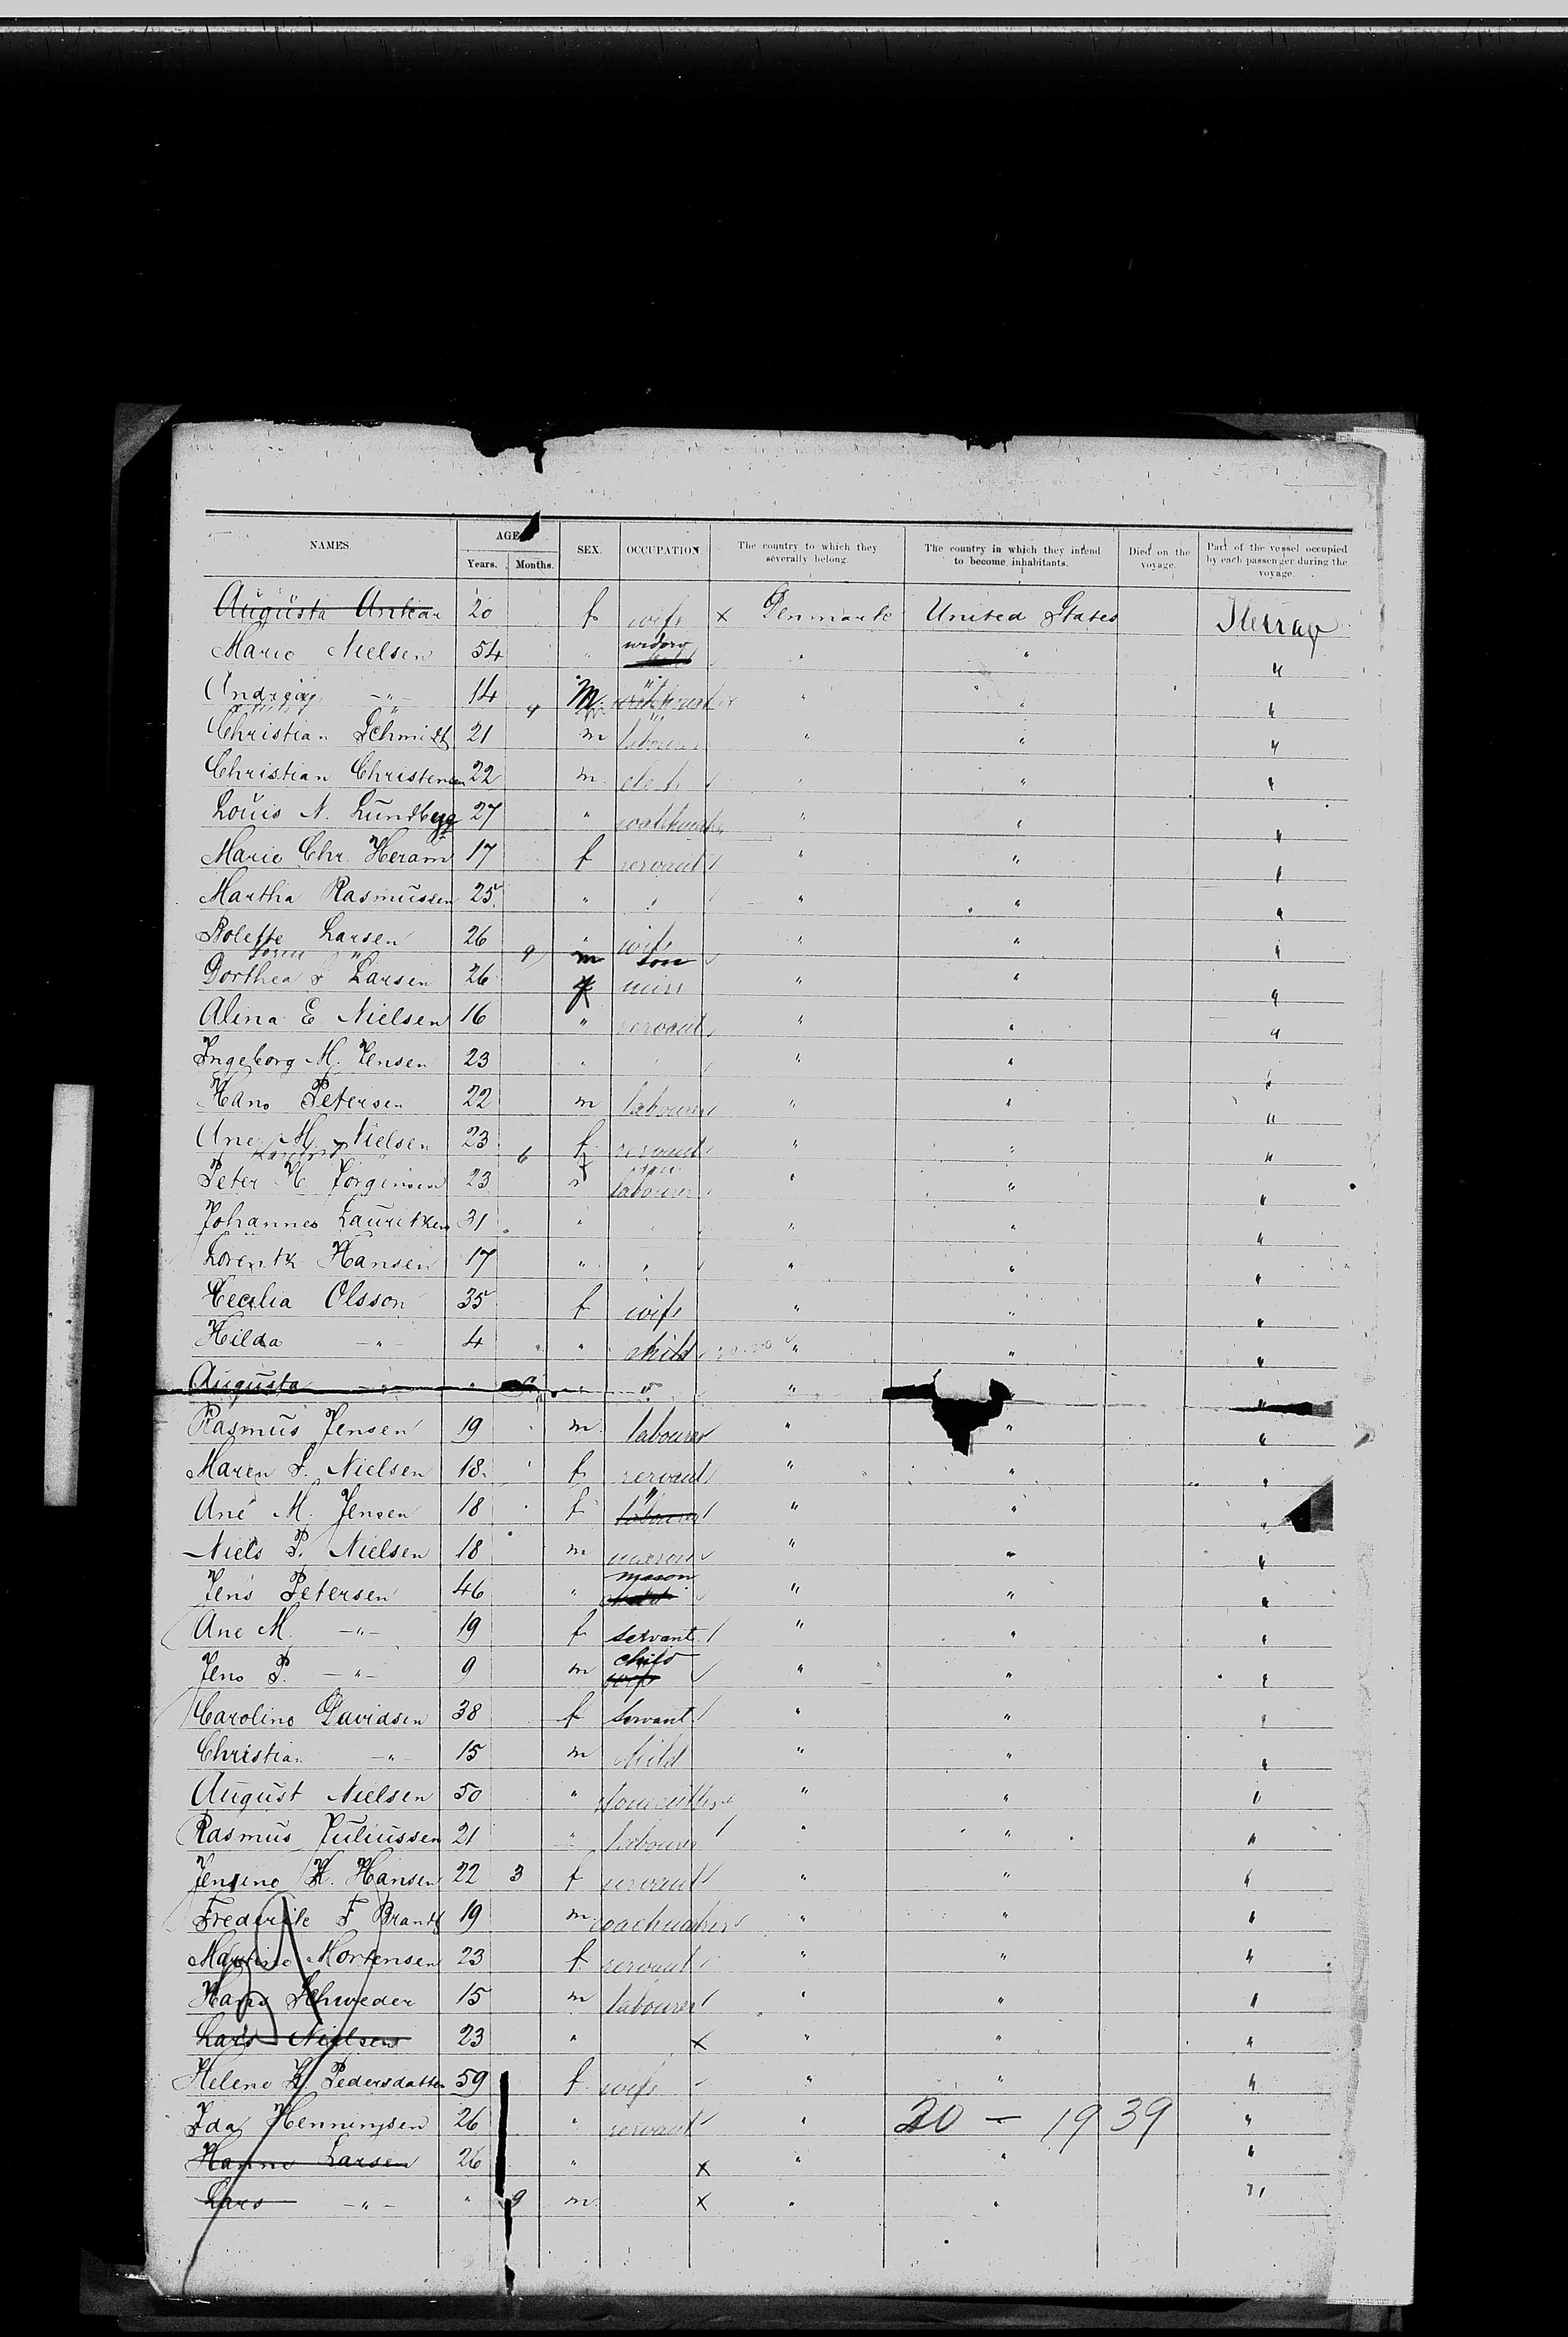 NAMES. AGE SEX. OCCUPATION. The country to which they severally belong. The country in which they intend to become inhabitants. Died on the voyage. Part of the vessel occupied by each passenger during the voyage.
Years. Months.
Augusta 20 f wife x Denmark United States
Marie Nielsen 54 " widow " " "
Andreas -"- 14 M " " "
4
Christian Schmidt 21 m labourer " " "
Christian Christensen 22 m " " "
Louis N. Lundberg 27 " " " "
Marie Chr. Heram 17 f servant " " "
Martha Rasmussen 25 " " " " "
Bolette Larsen 26 " wife " " "
" 9 m son
Dorthea Larsen 26 f " " "
Alina E Nielsen 16 " servant " " "
Ingeborg M. Jensen 23 " " " " "
Hans Petersen 22 m labourer " " "
Ane M. Nielsen 23 f servant " " "
6 f
Peter H Jörgensen 23 labourer " " "
Johannes Lauritzen 31 " " " " "
Lorentz Hansen 17 " " " " "
Cecilia Olsson 35 f wife " " "
Hilda -"- 4 " child " " "
Augusta -"- " " " " "
Rasmus Jensen 19 m labourer " " "
Maren S. Nielsen 18 f servant " " "
Ane M. Jensen 18 f " labourer " " "
Niels P. Nielsen 18 m " " "
Jens Petersen 46 " mason " " "
Ane M. -"- 19 f servant " " "
Jens P. -"- 9 m child wife " " "
Caroline Davidsen 38 f servant " " "
Christian -"- 15 m child " " "
August Nielsen 50 " " " "
Rasmus Juliussen 21 " labourer " " "
Jensine K. Hansen 22 3 f servant " " "
Frederik F Brandt 19 m coachmaker " " "
Martine Mortensen 23 f servant " " "
Hans Schweder 15 m labourer " " "
Lars Nielsen 23 " x " " "
Helene K Pedersdatter 59 f wife " " "
Ida Henningsen 26 " servant " 20 - 19 39 "
Hanne Larsen 26 " x " " "
Lars -"- " 9 m x " " "